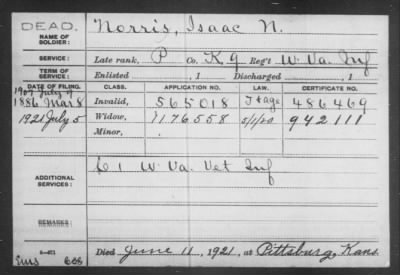 DEAD.
NAME OF SOLDIER:
Norris, Isaac N.
SERVICE:
Late rank, P Co. K, 9 Reg't W. Va. Inf
TERM OF SERVICE:
Enlisted , 1 Discharged , 1
DATE OF FILING. CLASS. APPLICATION NO. LAW. CERTIFICATE NO.
1907 July
1886 Mar 8 Invalid, 565018 I + age 486469
1921 July 5 Widow, 1176558 5/1/20 942111
Minor,
ADDITIONAL SERVICES:
C 1 W. Va. Vet Inf
REMARKS:
Died June 11, 1921, at Pittsburg, Kans.